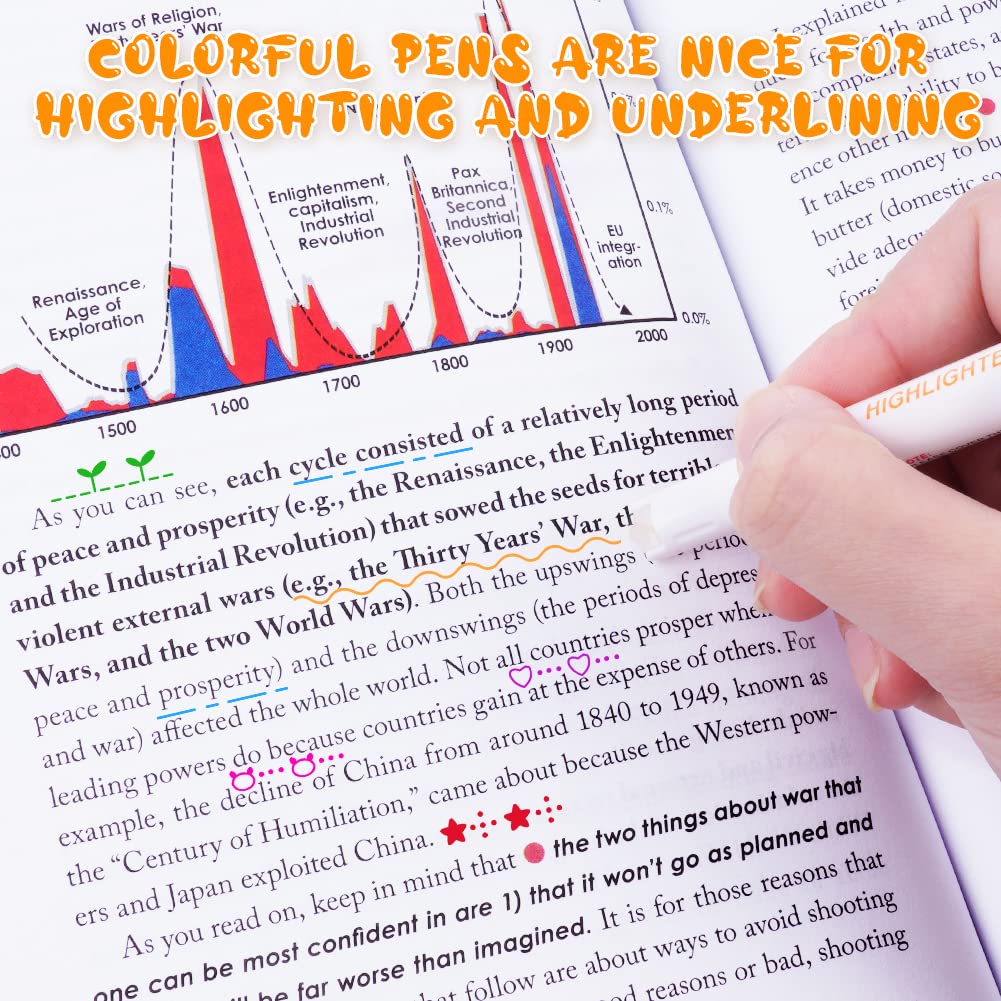 COLORFUL PENS ARE NICE FOR
HIGHLIGHTING AND UNDERLINING
Wars of Religion,
War
Enlightenment,
capitalism,
Industrial
Revolution
Pax
Britannica,
Second
Industrial
Revolution
EU
integr-
ation
Renaissance,
Age of
Exploration
0.1%
0.0%
1500
1600
1700
1800
1900
2000
As you can see, each cycle consisted of a relatively long period
of peace and prosperity (e.g., the Renaissance, the Enlightenmen
and the Industrial Revolution) that sowed the seeds for terribl
violent external wars (e.g., the Thirty Years' War, th
Wars, and the two World Wars). Both the upswings
peace and prosperity) and the downswings (the periods of depres
and war) affected the whole world. Not all countries prosper whe
leading powers do because countries gain at the expense of others. For
example, the decline of China from around 1840 to 1949, known as
the "Century of Humiliation," came about because the Western pow-
ers and Japan exploited China.
As you read on, keep in mind that the two things about war that
one can be most confident in are 1) that it won't go as planned and
be far worse than imagined. It is for those reasons that
follow are about ways to avoid shooting
reasons or bad, shooting
explained
and pow
states, a
ability to b
ence other n
It takes money to bu
butter (domestic so
vide adequ
fore
HIGHLIGHTE